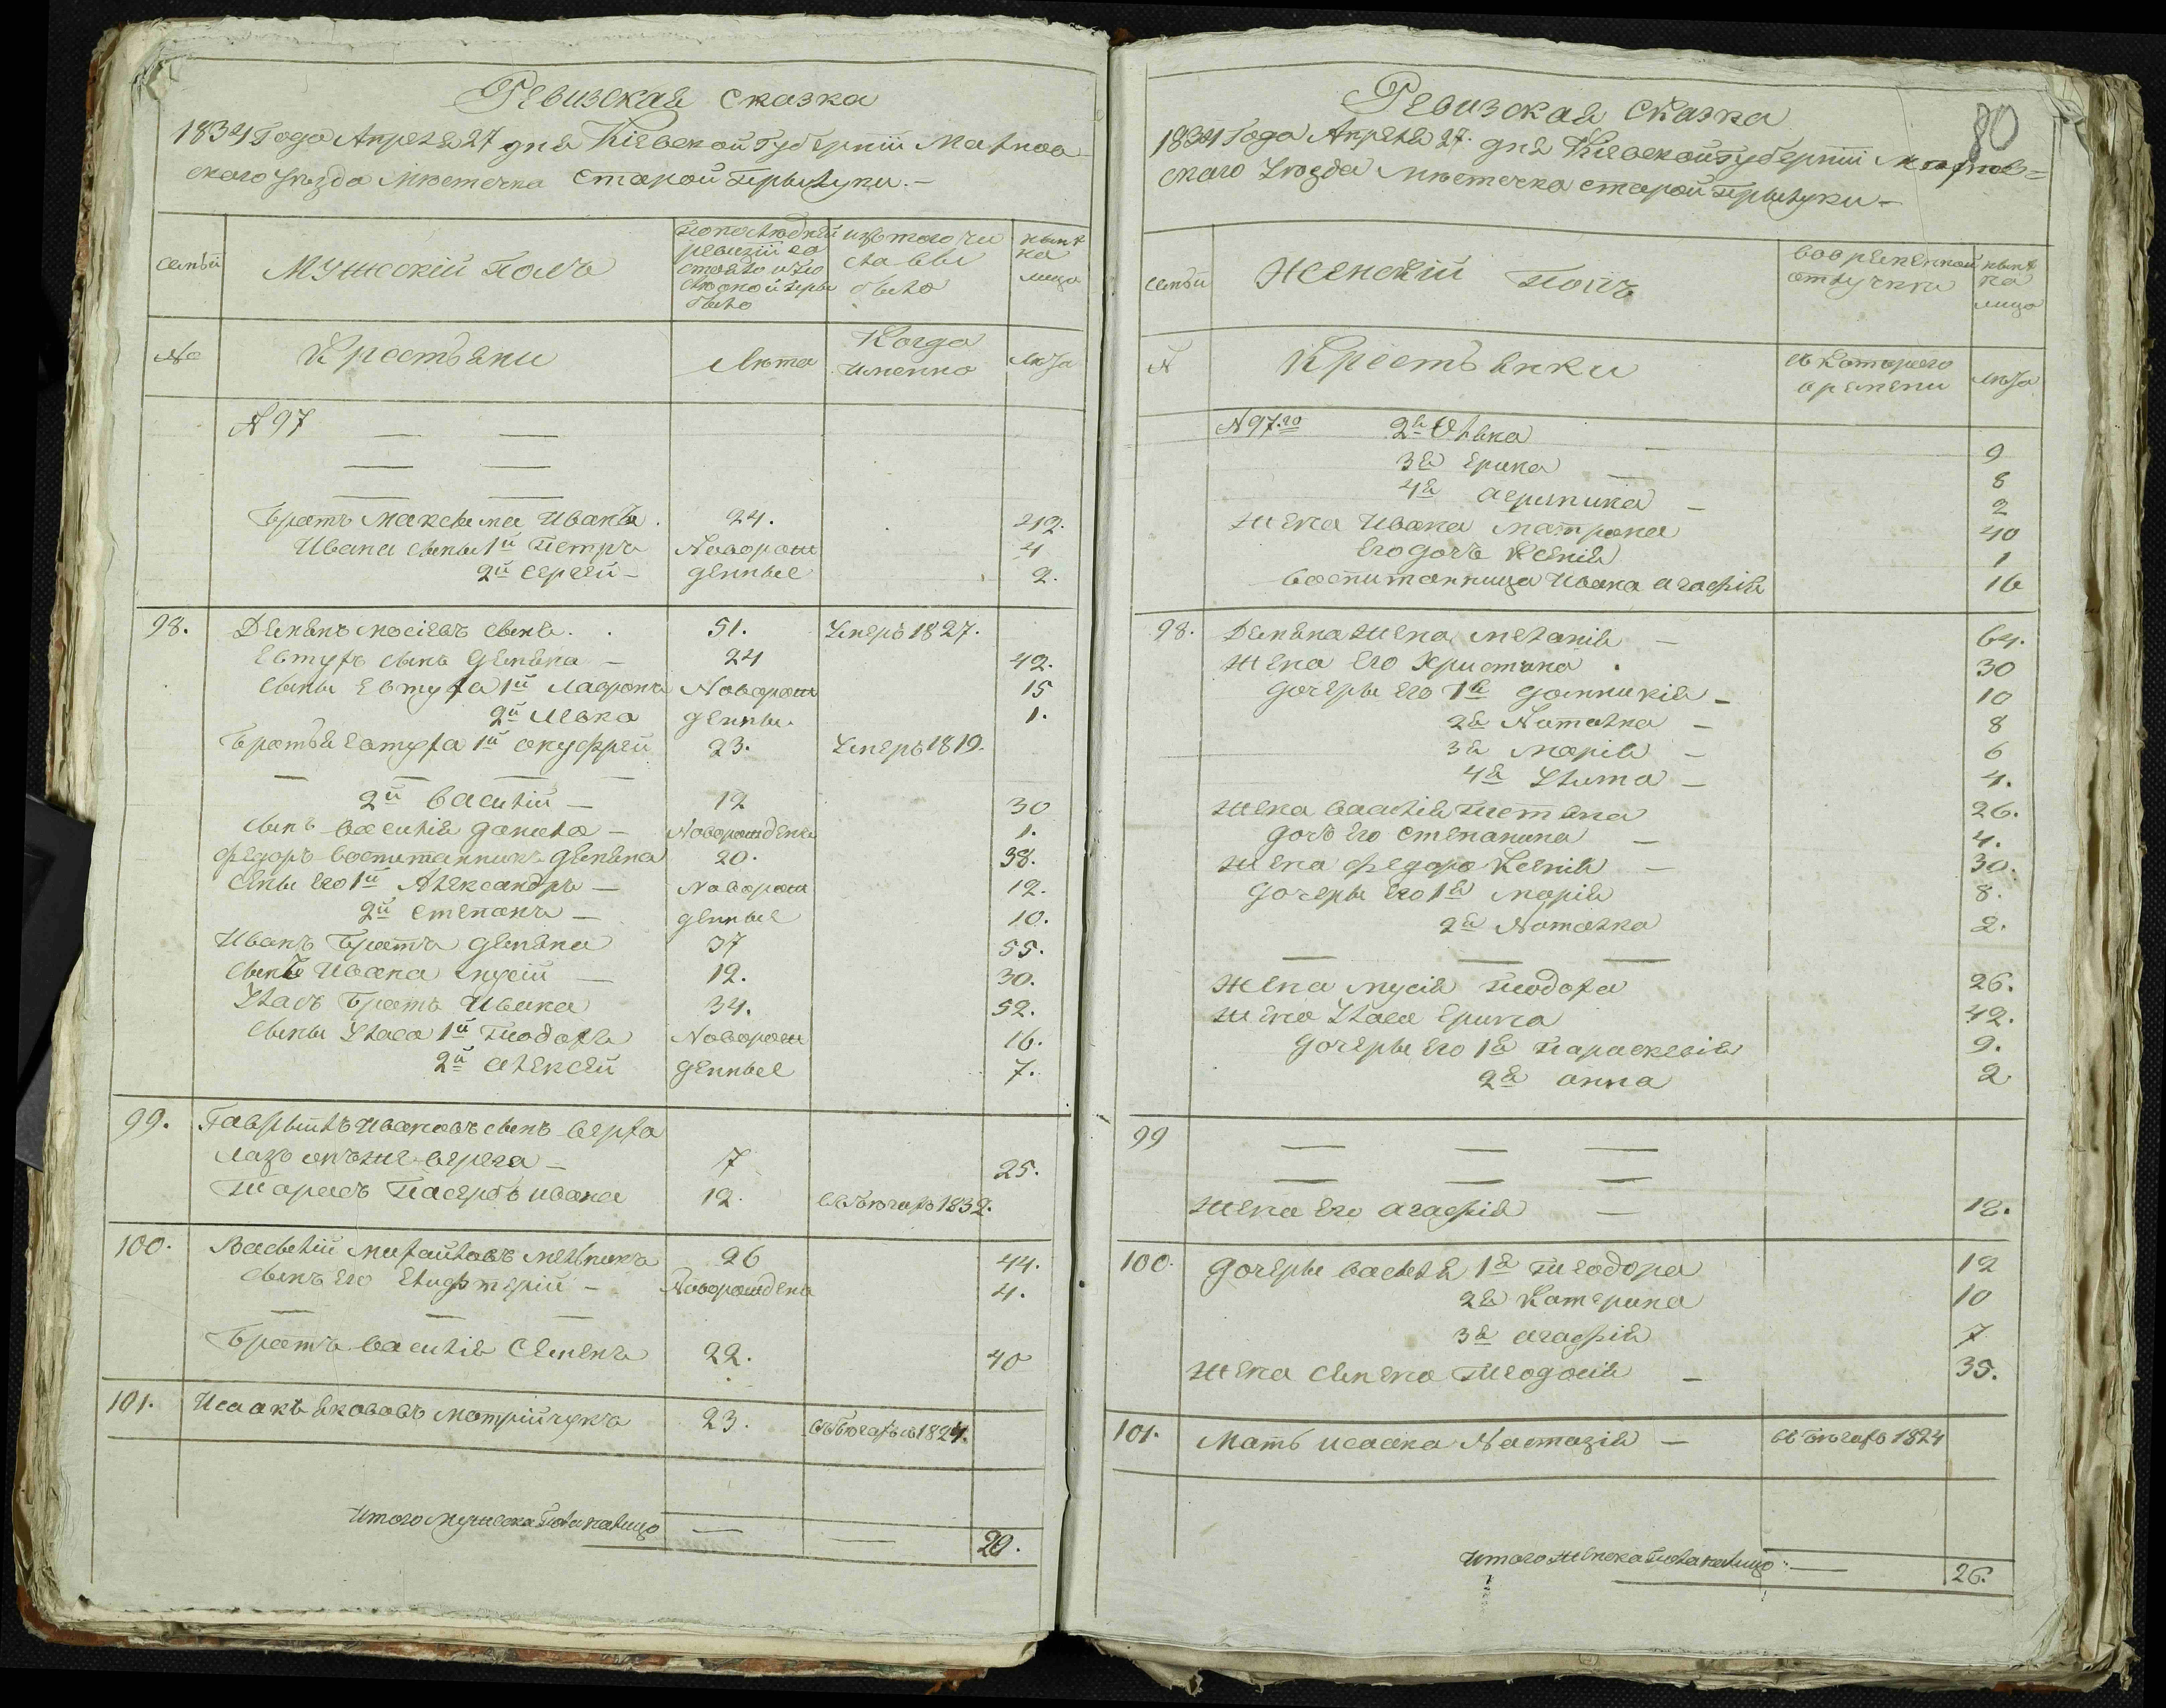 Ревизская сказка
1834 Года Апреля 27 дня Кіевской Губерніи Махнов-
скаго уѣзда Мѣстечка старой Прылуки.-
семьи
Мужескій Полъ
по последней ревизіи состояло и после оной прибыло
изъ того числа выбыло
нынѣ на лицо
№
Крестьяни
Лѣта
Когда Именно
Лѣта
№ 97
Братъ Максима Иванъ. 24. 42.
Ивана сыны 1й Петръ Новорож 4
2й Сергей - денные 2.
98. Демянъ Мосіевъ сынъ. 51. Умеръ 1827.
Евтухъ сынъ Демяна - 24 42.
Сыны Евтуха 1й Лавронъ Новорож 15
2й Левко денны. 1.
Братья Евтуха 1й Онуфрей 23. Умеръ 1819.
2й Василій - 12 30
Сынъ Василія Данило - Новорожденъ 1.
Федоръ воспитанникъ Демяна 20. 38.
Сыны его 1й Александръ - Новорож 12.
2й Степанъ - денные 10.
Иванъ Братъ Демяна 37 55.
Сынъ Ивана Мусій - 12. 30.
Уласъ Братъ Ивана 34. 52.
Сыны Уласа 1й Новорож 16.
2й Алексей денные 7.
99. Ивановъ сынъ
7 25.
Тарасъ Пасербъ Ивана 12. 1832.
100. Василій Михайловъ Мельникъ 26 44.
Сынъ его Елифтерій - Новорожденъ 4.
Братъ Василія Семенъ 22. 40
101. Исаакъ Якововъ Матрійчукъ 23. въ бегахъ съ 1824.
Итого Мужеска Пола налицо 20.
80
Ревизская Сказка
1834 Года Апреля 27. дня Кіевской Губерніи Махнов=
скаго Уѣзда Мѣстечка старой Прылуки -
семьи
Женскій Полъ
во временной отлучки
нынѣ на лицо
№
Крестьянки
съ Которого времени
лѣта
№ 97.го 2я Олена 9
3я Ерина 8
4я Агрипина - 2
Жена Ивана Матрона 40
Его дочь Ксенія 1
Воспитанница Ивана Агафія 16
98. Демяна Жена Меланія - 64.
Жена Его Христина. 30
дочеры Его 1я - 10
2я Наталка - 8
3я Марія - 6
4я Улита - 4.
Жена Василія Тетяна 26.
дочь Его Степанина - 4.
Жена Федора Ксенія - 30.
дочеры Его 1я Марія 8.
2я Наталка 2.
Жена Мусія 26.
Жена Уласа Ерина 42.
дочеры Его 1я Параскевія 9.
2я Анна 2
99
Жена Его Агафія - 18.
100. дочеры Василя 1я Теодора 12
2я Катерина 10
3я Агафія 7
Жена Семена Теодосія - 35.
101. Мать Исаака Настазія - въ бегахъ 1824
Итого женска Пола налицо: - 26.